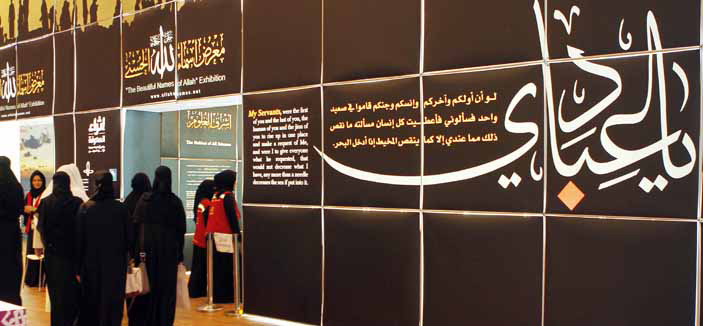 معرض أسماء الله الحسنى
"The Beautiful Names of Allah" Exhibition
أشرف العلوم
The Noblest of All Sciences
إثراء المعرفة
My Servants, were the first
of you and the last of you, the
human of you and the jinn of
you to rise up in one place
and make a request of Me,
and were I to give everyone
what he requested, that
would not decrease what I
have, any more than a needle
decreases the sea if put into it.
لو أن أولكم وأخركم وإنسكم وجنكم قاموا في صعيد
واحد فسألوني فأعطيت كل إنسان مسألته ما نقص
ذلك مما عندي إلا كما ينقص المخيط إذا أدخل البحر.
يا عبادي